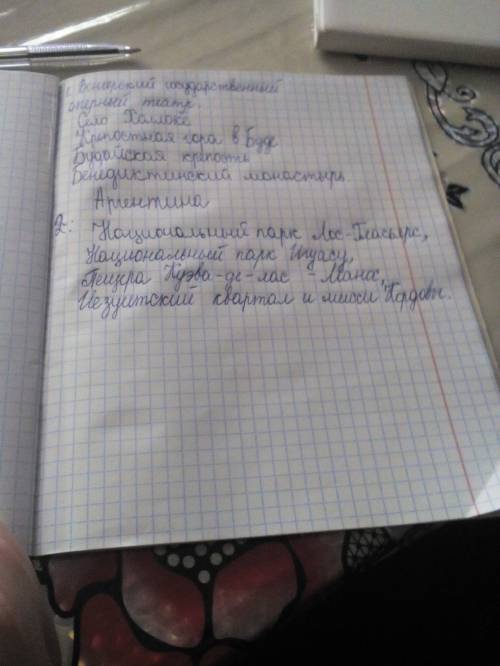 Венгерский государственный
оперный театр.
Село Холлокё
Крепостная гора в Буде
Будайская крепость
Бенедиктинский монастырь
Аргентина
2: Национальный парк Лос-Гласьярс,
Национальный парк Игуасу,
Пещера Куэва-де-лас-Манос,
Иезуитский квартал и миссии Кордовы.